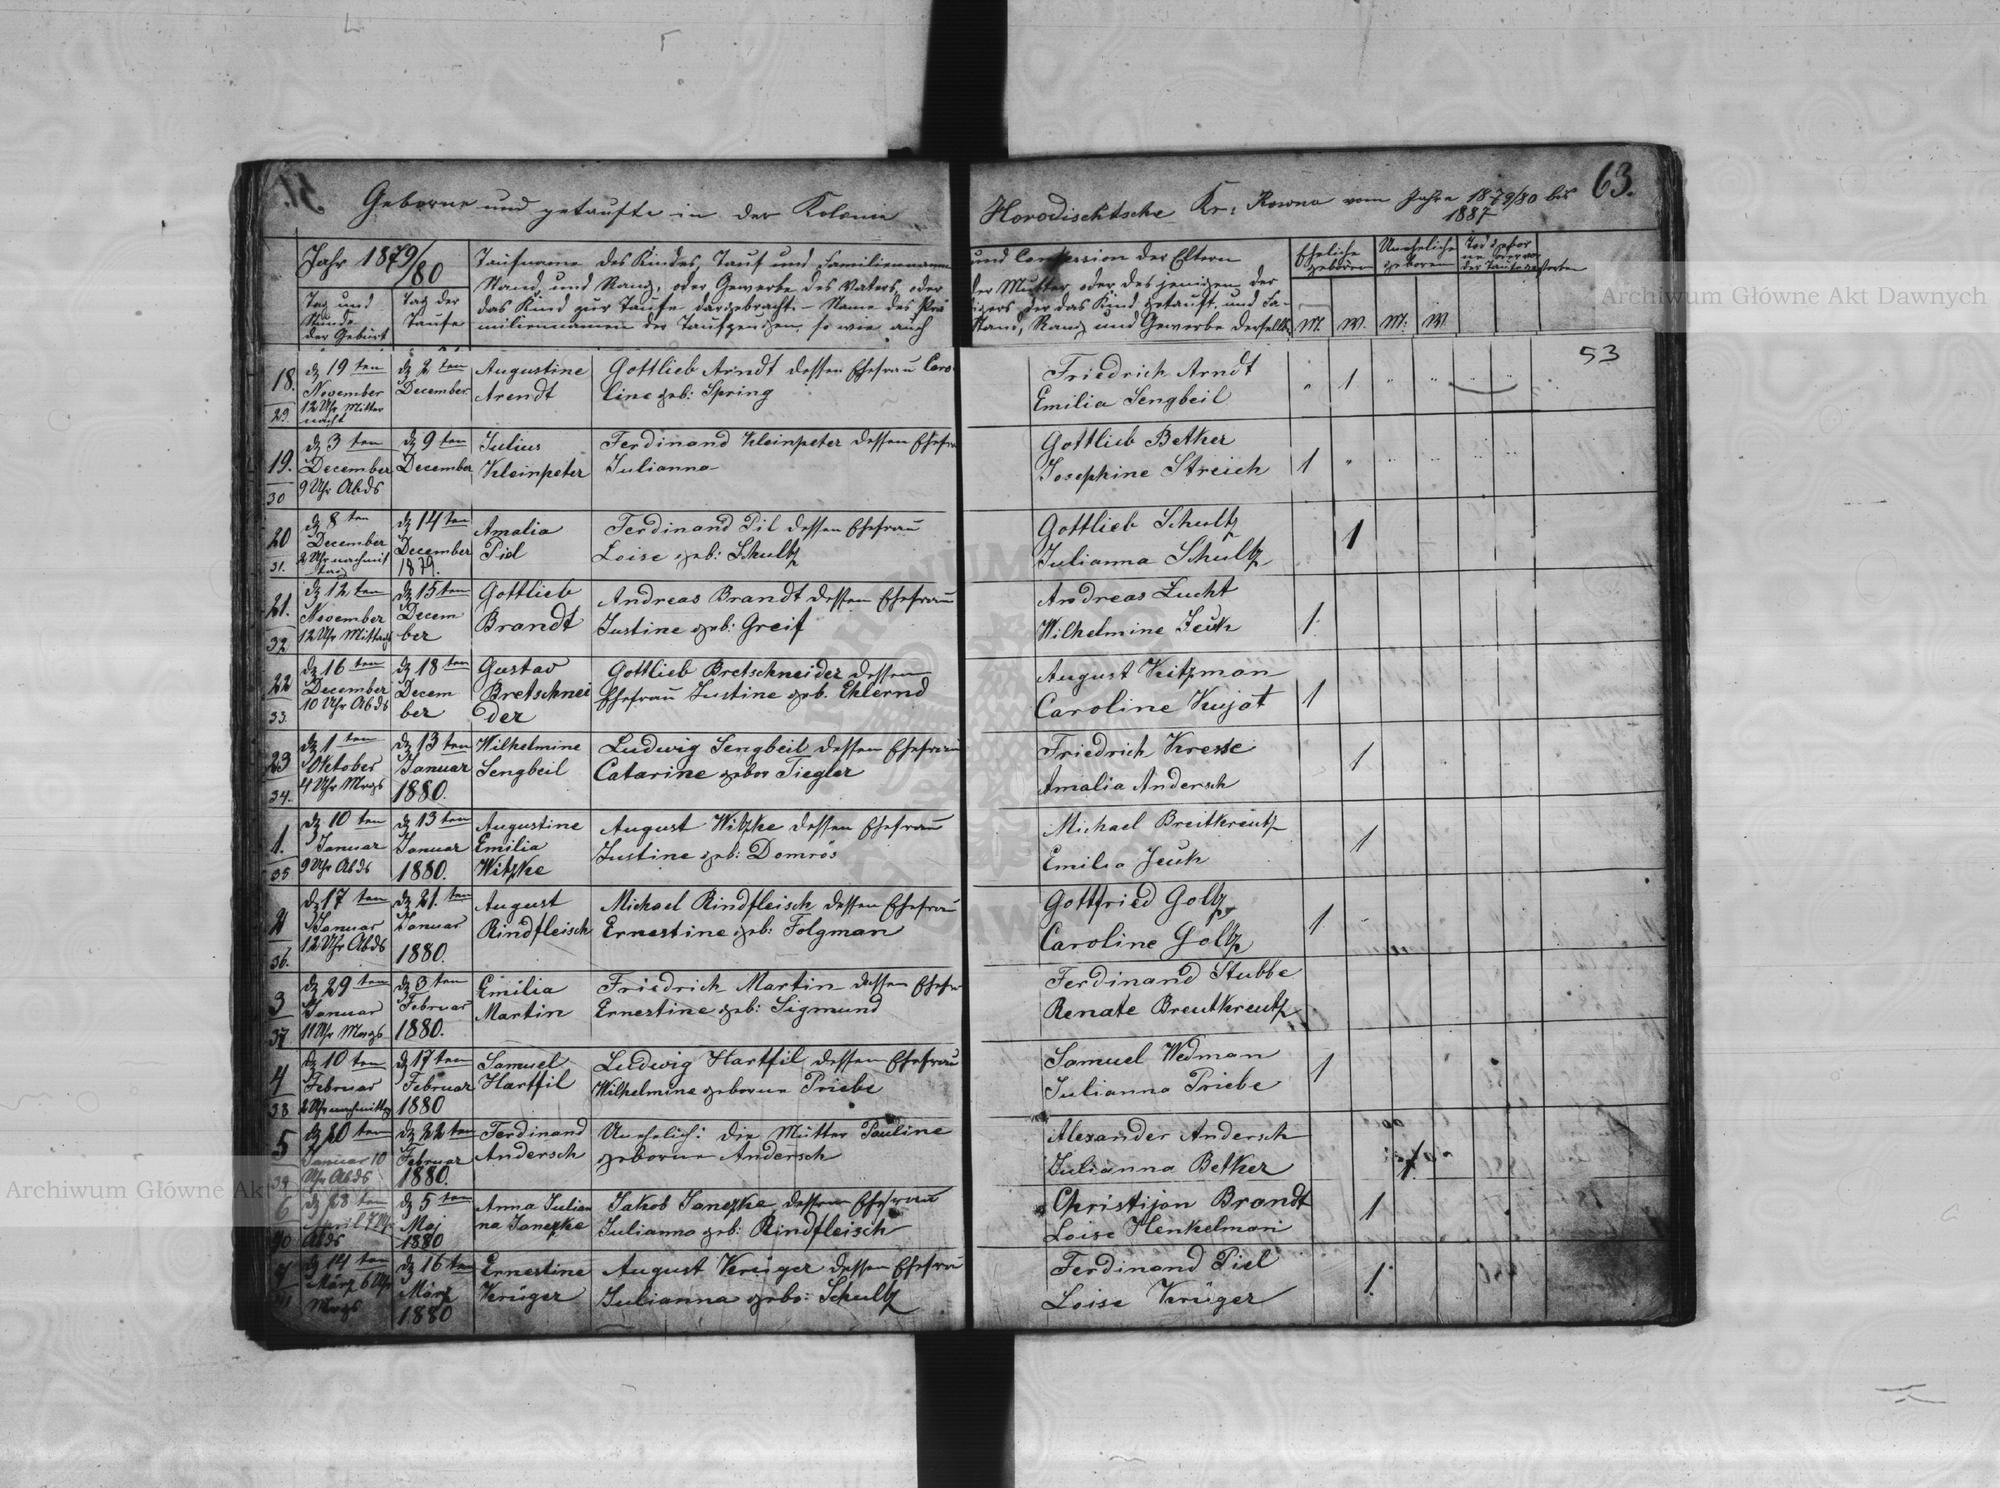 Geborne und getaufte in der Kolonie
Horodischtsche Kr: Rowno vom Jahre 1879/80 bis 1887
63.
Jahr 1879/80
Tag und
Stunde
der Geburt
Tag der
Taufe
Taufname des Kindes, Tauf und Familienname
Stand und Rang, oder Gewerbe des Vaters, oder
das Kind zur Taufe dargebracht – Name des Pre
miliennamen der Taufzeugen, so wie auch
und Confession der Eltern
der Mutter oder des jenigen der
igers, der das Kind getauft, und Fa-
Stand, Rang und Gewerbe derselb.
Eheliche
geboren
Uneheliche
geboren
M. W. M: W.
53
18.
29.
dz 19 ten
November
12 Uhr Mitter
nacht
dz 2 ten
December
Augustine
Arendt
Gottlieb Arndt dessen Ehefrau Caro
line geb: Spring
Friedrich Arndt
Emilia Sengbeil
1
19.
30
dz 3 ten
December
9 Uhr Abds
dz 9 ten
December
Julius
Kleinpeter
Ferdinand Kleinpeter dessen Ehefra
Julianna
Gottlieb Betker
Josephine Streich
1
20
31.
dz 8 ten
December
2 Uhr nachmit
tag
dz 14 ten
December
1879.
Amalia
Piel
Ferdinand Pil dessen Ehefrau
Loise geb: Schultz
Gottlieb Schultz
Julianna Schultz
1
21.
32
dz 12 ten
November
12 Uhr Mittag
dz 15 ten
Decem
ber
Gottlieb
Brandt
Andreas Brandt dessen Ehefrau
Justine geb: Greif
Andreas Lucht
Wilhelmine Jeuk
1
22
33.
dz 16 ten
December
10 Uhr Abds
dz 18 ten
Decem
ber
Gustav
Bretschnei
der
Gottlieb Bretschneider dessen
Ehefrau Justine geb. Ehlernd
August Kitzman
Caroline Kujat
1
23
34.
dz 1 ten
Oktober
4 Uhr Mrgs
dz 13 ten
Januar
1880.
Wilhelmine
Sengbeil
Ludwig Sengbeil dessen Ehefrau
Catarine gebor Tiegler
Friedrich Kresse
Amalia Andersch
1
1.
35
dz 10 ten
Januar
9 Uhr Abds
dz 13 ten
Januar
1880.
Augustine
Emilia
Witzke
August Witzke dessen Ehefrau
Justine geb: Domrös
Michael Breitkreutz
Emilia Jeuk
1
2
36.
dz 17 ten
Januar
12 Uhr Abds
dz 21. ten
Januar
1880.
August
Rindfleisch
Michael Rindfleisch dessen Ehefrau
Ernestine geb: Folgman
Gottfried Goltz
Caroline Goltz
1
3
37
dz 29 ten
Januar
11 Uhr Mrgs
dz 3 ten
Februar
1880.
Emilia
Martin
Friedrich Martin dessen Ehefr
Ernestine geb: Sigmund
Ferdinand Stubbe
Renate Breutkreutz
4
38
dz 10 ten
Februar
2 Uhr nachmittag
dz 17 ten
Februar
1880
Samuel
Hartfil
Ludwig Hartfil dessen Ehefrau
Wilhelmine geborne Priebe
Samuel Wedman
Julianna Priebe
1
5
39
dz 20 ten
Januar 10
Uhr Abds
dz 22 ten
Februar
1880.
Ferdinand
Andersch
Unehelich: die Mutter Pauline
geborne Andersch
Alexander Andersch
Julianna Betker
1.
6
40
dz 28 ten
April 7 Uhr
Abds
dz 5 ten
Maj
1880
Anna Julian
na Janezke
Jakob Janezke dessen Ehefrau
Julianna geb: Rindfleisch
Christijan Brandt
Loise Henkelman
1
7
41
dz 14 ten
März 6 Uhr
Mrgs
dz 16 ten
März
1880
Ernestine
Krüger
August Krüger dessen Ehefrau
Julianna gebo: Schultz
Ferdinand Piel
Loise Krüger
1.
Archiwum Główne Akt Dawnych
Archiwum Główne Akt